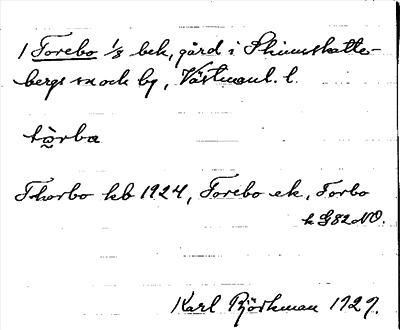 1 Torebo 1/8 bek, gård i Skinnskatte-
bergs sn och by, Västmanl. l.
tò̰rba
Thorbo kb 1924, Torebo ek, Torbo
k G82 NO.
Karl Björkman 1927.